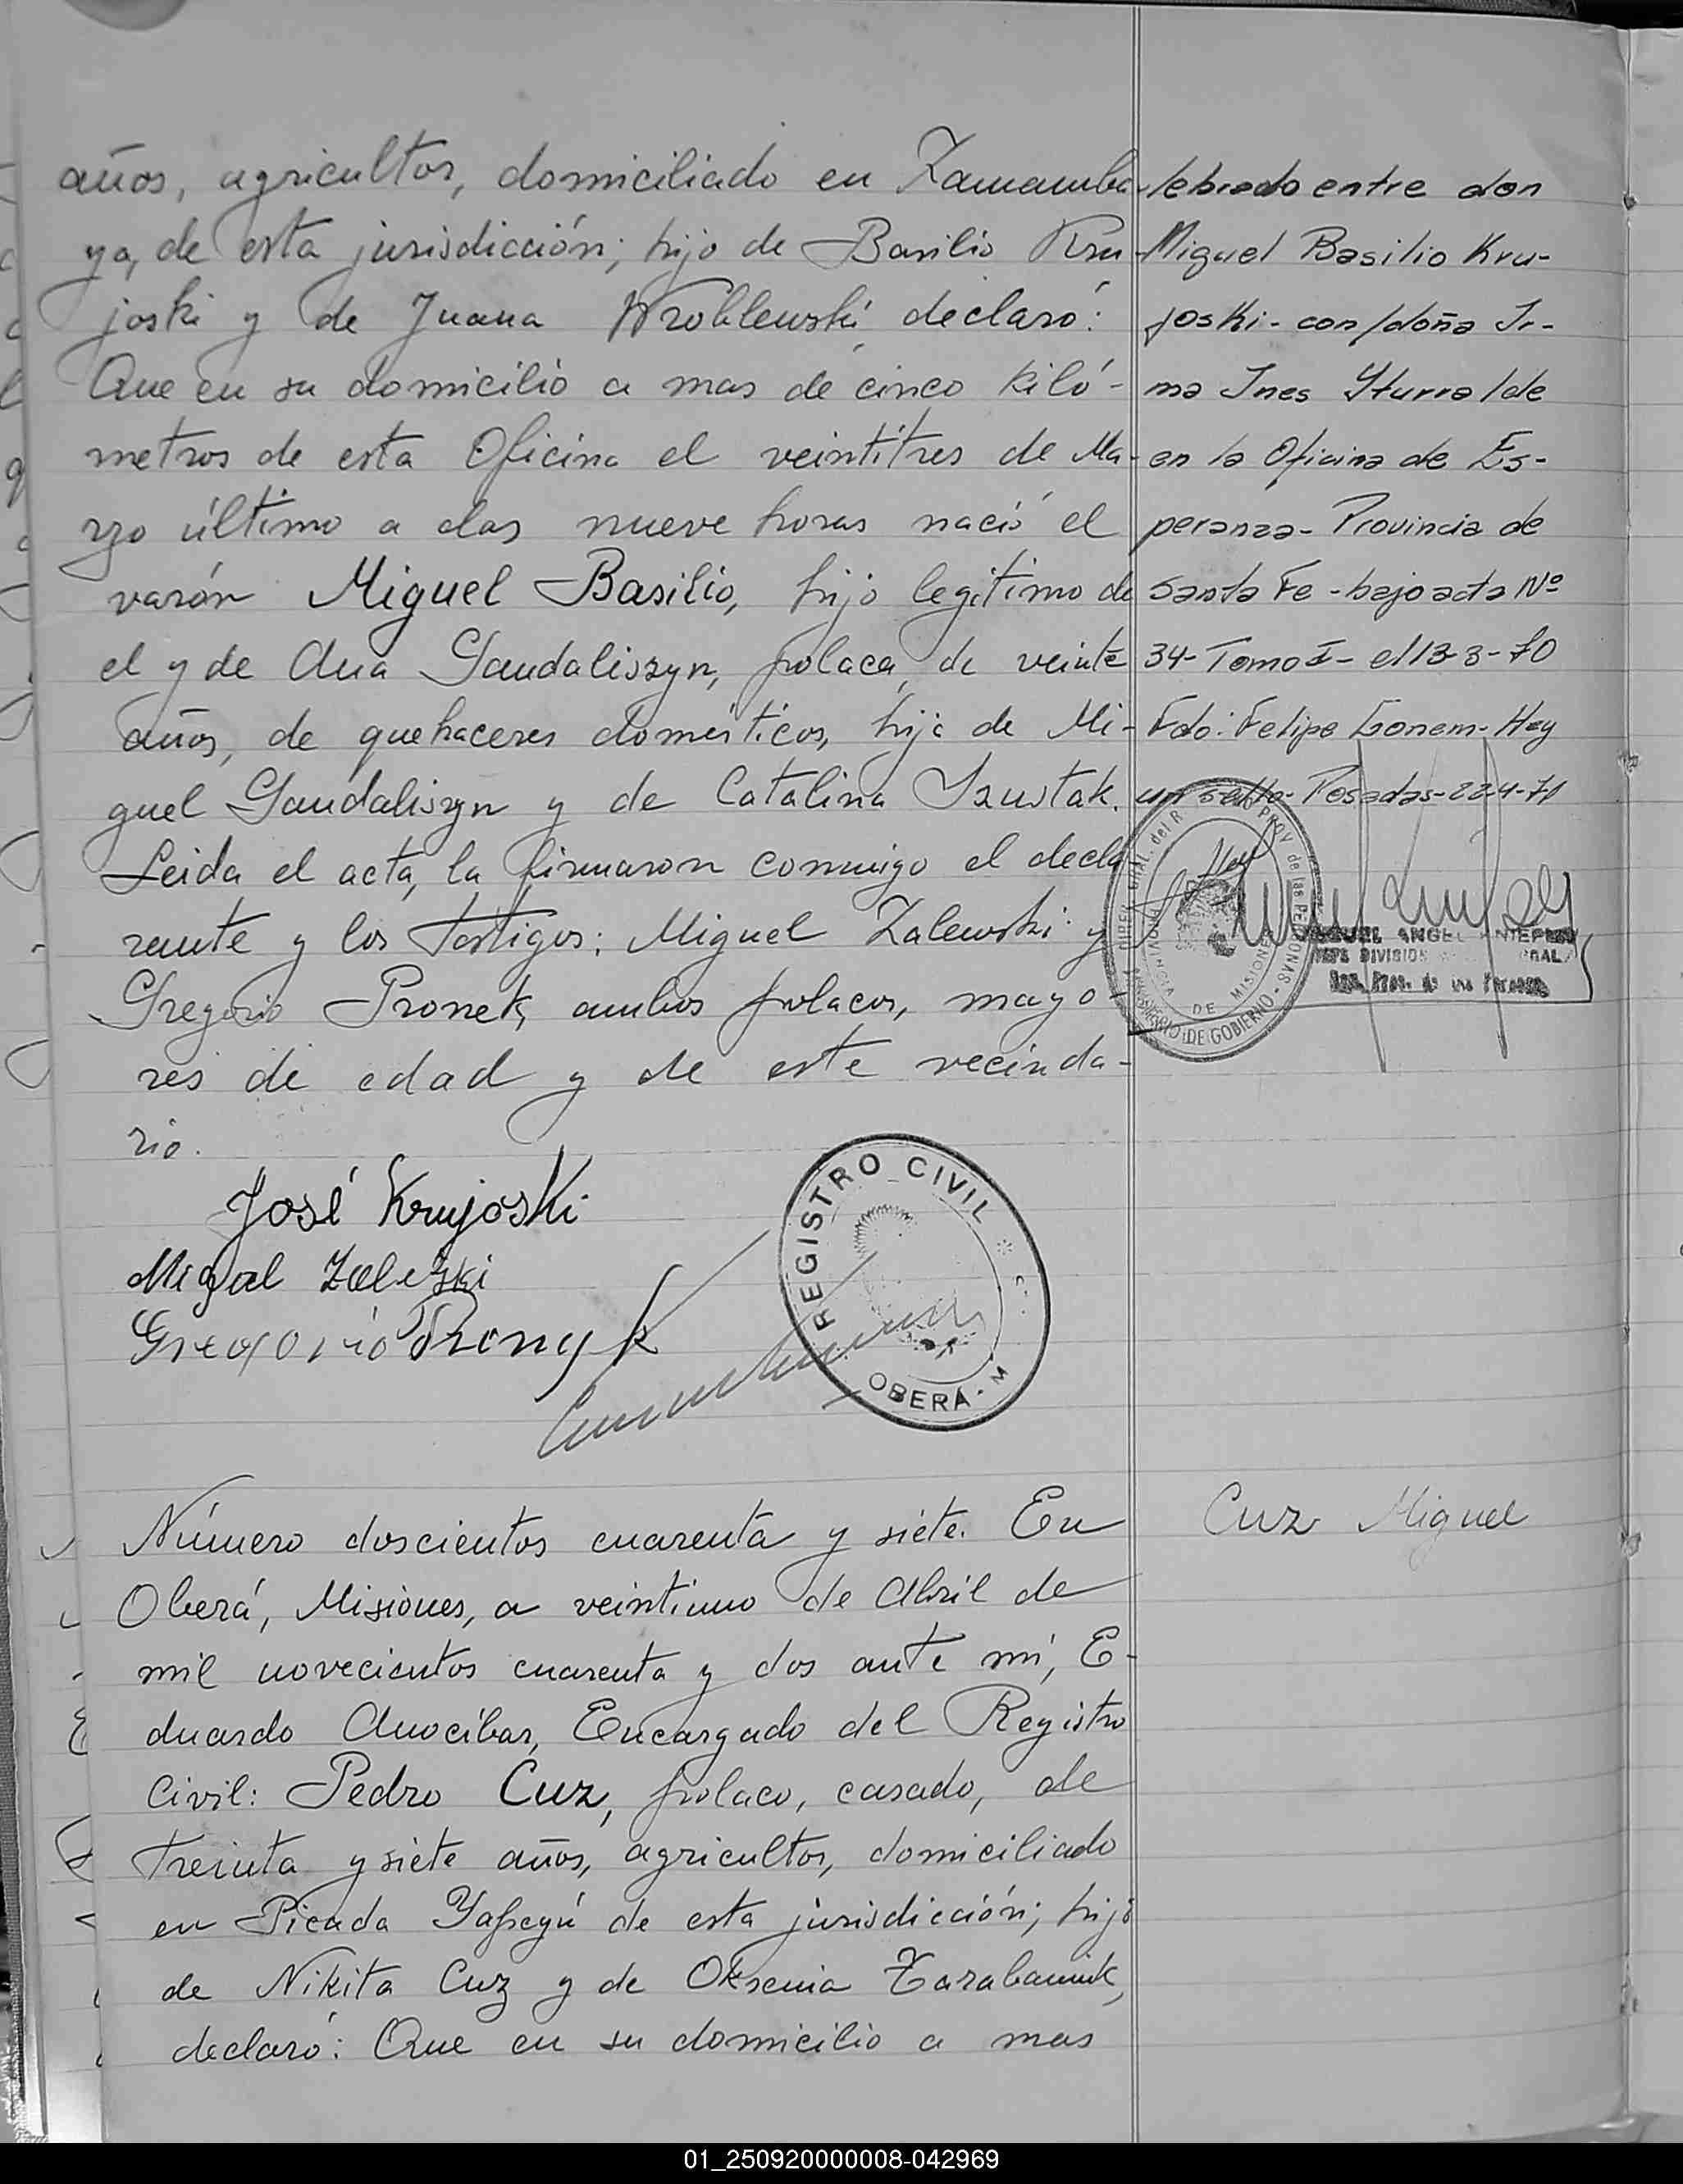 años, agricultor, domiciliado en Zamamba-
ya, de esta jurisdicción; hijo de Basilio Kru-
joski y de Juana Wroblewski, declaró:
Que en su domicilio a mas de cinco kiló-
metros de esta Oficina el veintitres de Ma-
rzo último a las nueve horas nació el
varón Miguel Basilio, hijo legítimo de
el y de Ana Gaudaliszyn, polaca, de veinte
años, de quehaceres domésticos, hija de Mi-
guel Gaudaliszyn y de Catalina Szustak.
Leida el acta, la firmaron conmigo el decla
rante y los testigos: Miguel Zalewski y
Gregorio Pronek, ambos polacos, mayo-
res de edad y de este vecinda-
rio.
José Krujoski
Migal Zaleski
Gregorio Pronyk
REGISTRO CIVIL
OBERÁ - M
lebrado entre don
Miguel Basilio Kru-
joski - con doña Ir-
ma Ines Yturralde
en la Oficina de Es-
peranza - Provincia de
Santa Fe - bajo acta Nº
34 - Tomo I - el 13-3-70
Fdo: Felipe Gonem - Hay
un sello - Posadas - 22-4-71
GRAL. del R
PROV de las PERSONAS
PROVINCIA DE MISIONES
MINISTERIO DE GOBIERNO
MIGUEL ANGEL
JEFE DIVISION
Reg. Prov. de las Personas
Número doscientos cuarenta y siete. En
Oberá, Misiones, a veintiuno de Abril de
mil novecientos cuarenta y dos ante mí, E-
duardo Anocíbar, Encargado del Registro
Civil: Pedro Cuz, polaco, casado, de
treinta y siete años, agricultor, domiciliado
en Picada Yapeyú de esta jurisdicción; hijo
de Nikita Cuz y de Oksenia Tarabaniuk,
declaró: Que en su domicilio a mas
Cuz Miguel
01_250920000008-042969